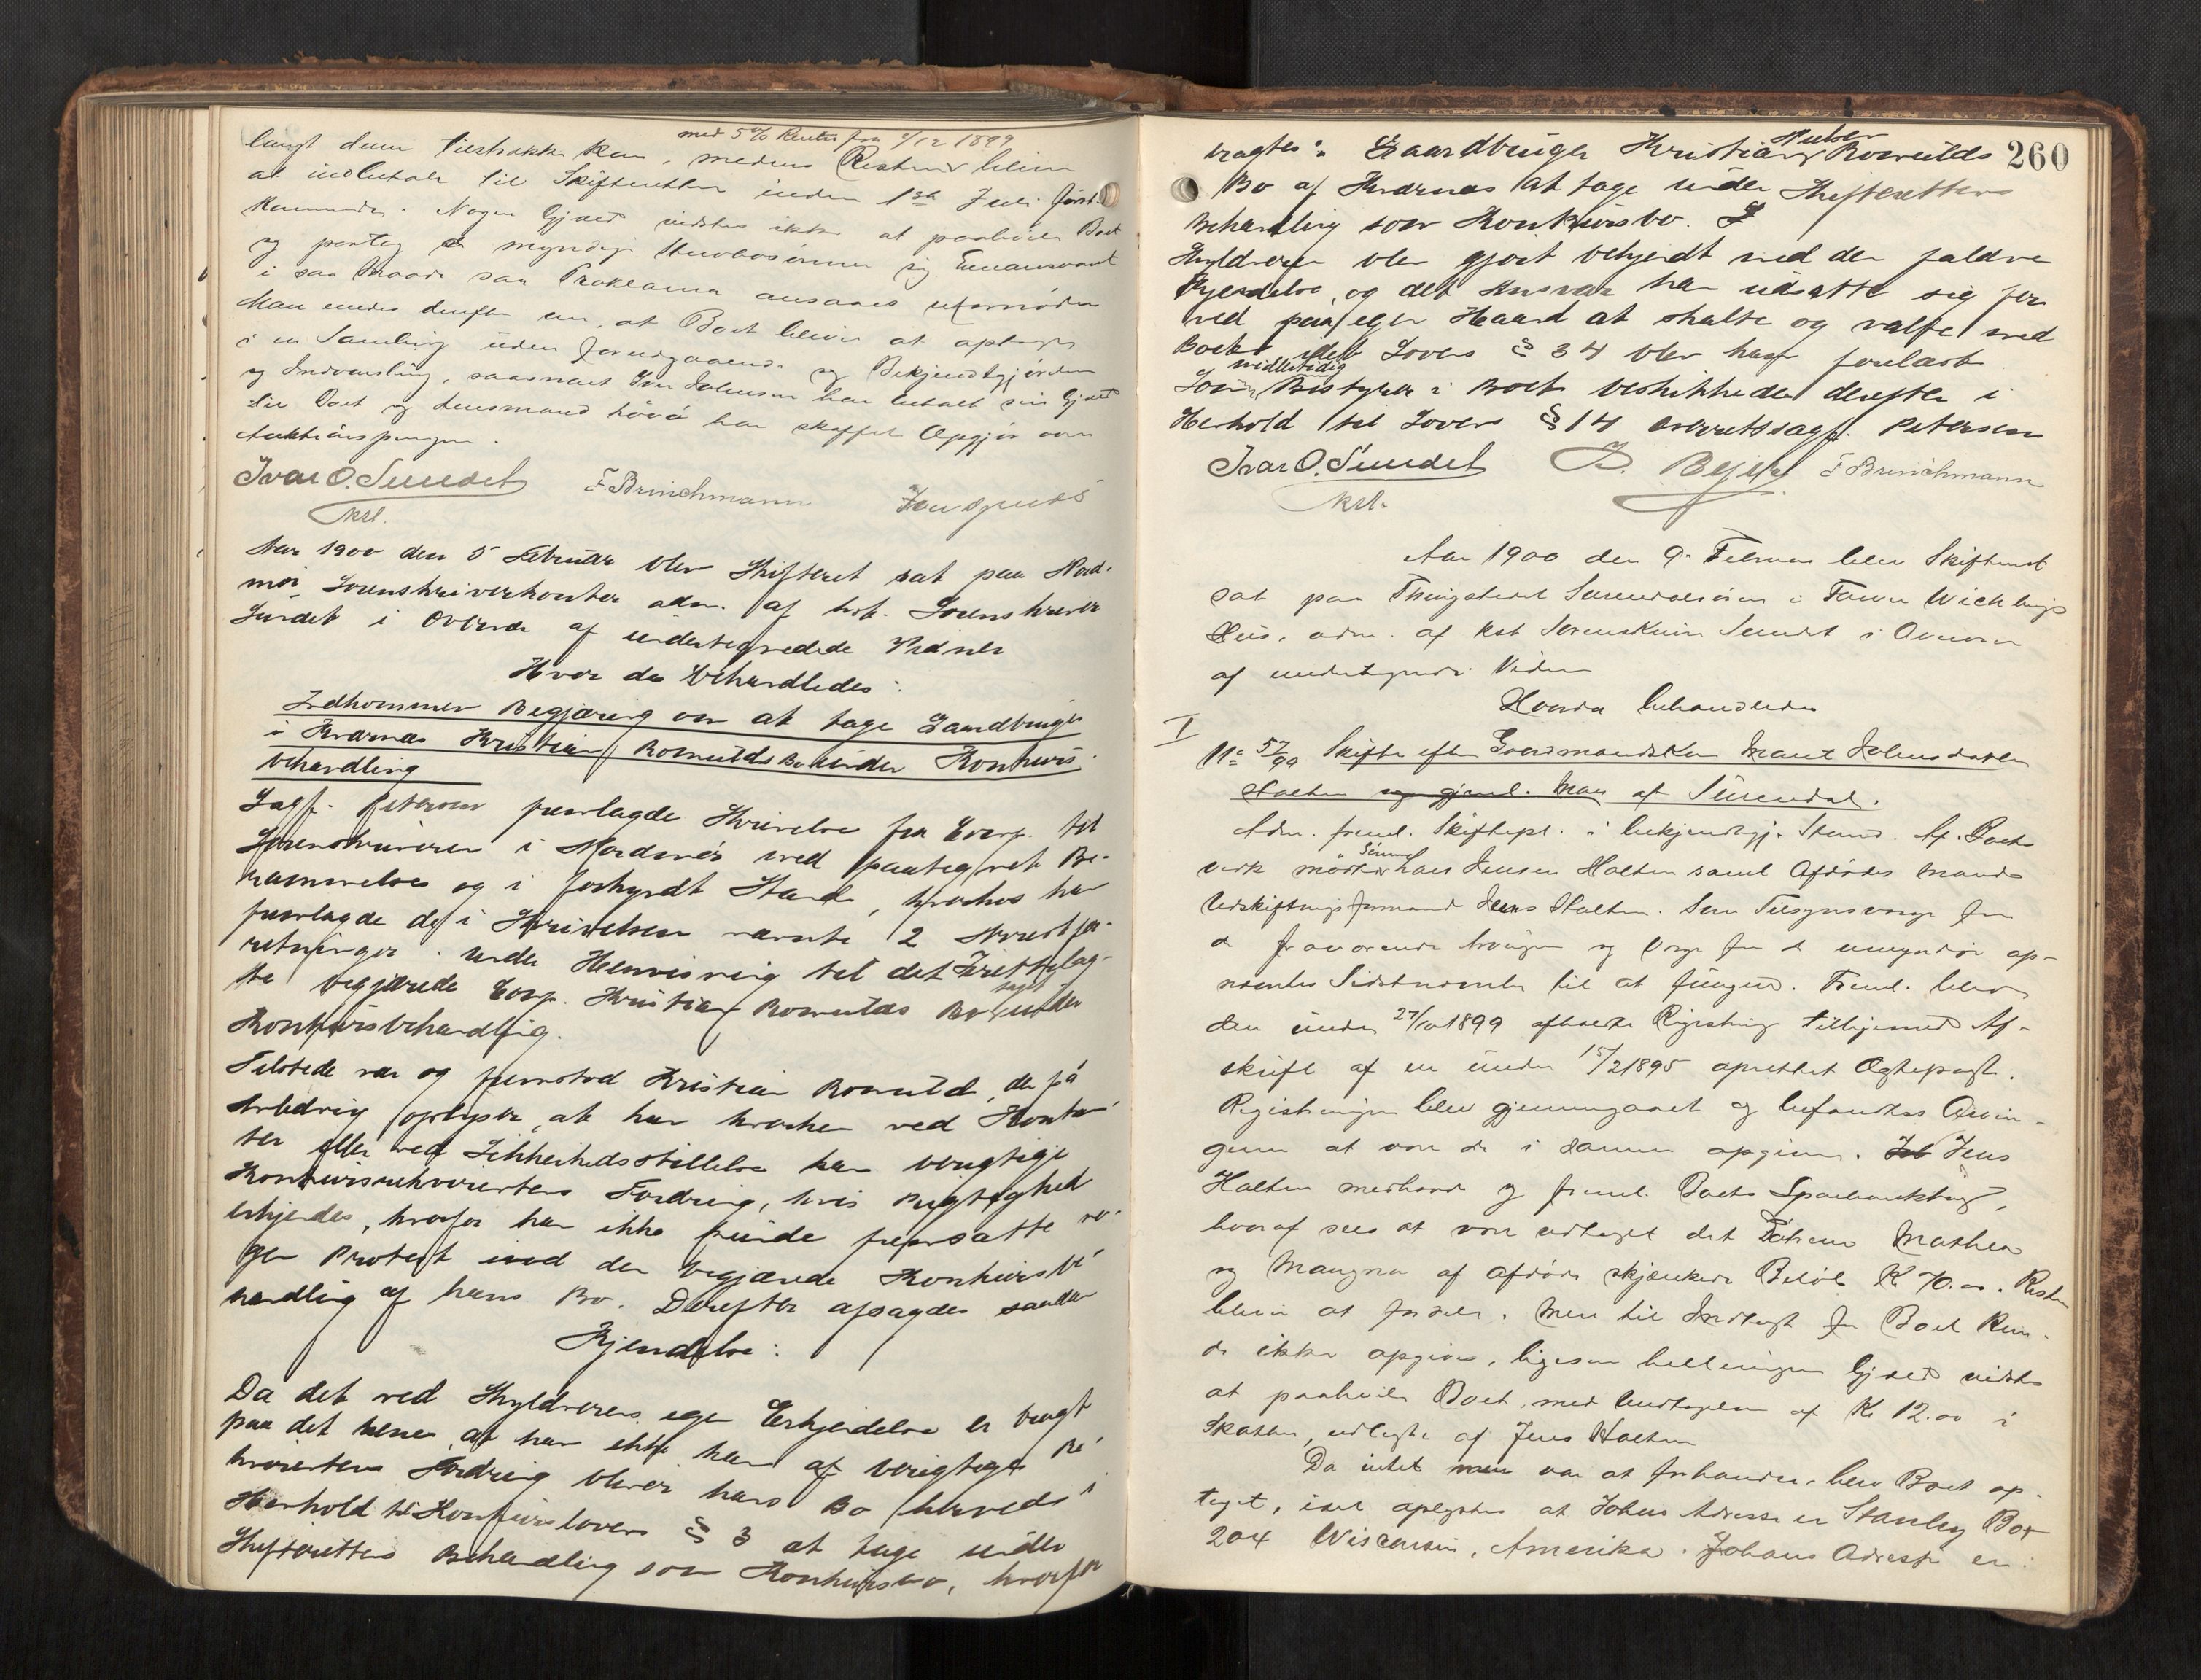 med 5% Renter fra 1/12 1899
langt denne tilstrække kan, medens Resten bliver
at indbetale til Skifteretten inden 1ste Juli førstk.
kommende. Nogen Gjæld vidstes ikke at paahvile Boet
og paatog de myndige sig Eneansvaret
i saa Maade saa Proklama ansaaes ufornøden
Man enedes derefter om, at Boet bliver at optages
i en Samling uden forudgaaende Bekjendtgjørelse
og Indvarsling, saasnart Iver Johnsen har betalt sin Gjæld
til Boet og Lensmand har skaffet Opgjør over
Auktionspengene.
Ivar O. Sundet F. Brinchmann
kst.
Aar 1900 den 5 Februar blev Skifteret sat paa Nord-
mør Sorenskriverkontor adm. af kst. Sorenskriver
Sundet i Overvær af undertegnede Vidner
Hvor da behandledes:
Indkommen Begjæring om at tage Gaardbruger
i Kværnæs Kristian Romulds Bo under Konkurs-
behandling
Sagf. Petersen fremlagde Skrivelse fra Eosp. til
Sorenskriveren i Nordmør med paategnet Be-
rammelse og i forkyndt Stand, hvorhos han
fremlagde de i Skrivelsen nævnte 2 Arrestfor-
retninger. Under Henvisning til det Fremlag-
te begjærede Eosp. Kristian Romulds Bo taget under
Konkursbehandling.
Tilstede var og fremstod Kristian Romuld, der på
Anledning oplyste, at han hverken ved Kontan-
ter eller ved Sikkerhedsstillelse kan berigtige
Konkursrekvirentens Fordring, hvis Rigtighed
erkjendes, hvorfor han ikke kunde fremsætte no-
gen Protest imod den begjærede Konkursbe-
handling af hans Bo. Derefter afsagdes saadan
Kjendelse:
Da det ved Skyldnerens egen Erkjendelse er bragt
paa det rene, at han ikke kan af berigtige Re-
kvirentens Fordring bliver hans Bo herved i
Henhold til Konkurslovens § 3 at tage under
Skifterettens Behandling som Konkursbo, hvorfor
260
bragtes: Gaardbruger Kristian Romulds
Bo af Kværnæs at tage under Skifterettens
Behandling som Konkursbo.
Skyldneren blev gjort bekjendt med den faldne
Kjendelse, og det Ansvar han udsatte sig for
ved paa egen Haand at skalte og valte med
Boet, idet Lovens § 34 blev ham forelæst
Som midlertidig Bestyrer i Boet beskikkedes derefter i
Henhold til Lovens § 14 Overretssagf. Petersen
Ivar O. Sundet F. Brinchmann
kst.
Aar 1900 den 9. Februar blev Skifteret
sat paa Thingstedet Surendalsøren i Wichlings
Hus, adm. af kst Sorenskriver Sundet i Overvær
af undertegnede Vidner
Hvorda behandledes
I
No 57/99 Skifte efter Gaardmandskone Marit Johnsdatter
Halten og gjenl. Man af Surendal.
Adm. freml. Skiftepl. i bekjendtgj. Stand. Af Boets
vedk mødte Sønnen Lars Jensen Halten samt Afdødes Mand
Udskiftningsformand Jens Halten. Som Tilsynsværge for
de fraværende Arvinger og Værge for de umyndige op-
nævntes Sidstnævnte til at fungere. Freml. blev
den under 27/10 1899 afholdte Registrering tilligemed Af-
skrift af en under 15/2 1895 oprettet Ægtepagt.
Registreringen blev gjennemgaaet og befandtes Arvin-
gerne at være de i samme opgivne. Jens
Halten medhavde og freml. Boets Sparebankbog,
hvoraf sees at være udtaget det Mathea
og Magna af Afdøde skjænkede Beløb Kr 70.00. Resten
bliver at fordele. Men til Indtægt for Boet kun-
de ikke opgives, ligesom hellerikke Gjæld vidstes
at paahvile Boet, med Undtagelse af Kr 12.00 i
Skatter, udlagte af Jens Halten
Da intet mere var at forhandle, blev Boet op-
taget, idet oplystes at Johns Adresse er Stanley Box
204 Wisconsin, Amerika. Johans Adresse er: